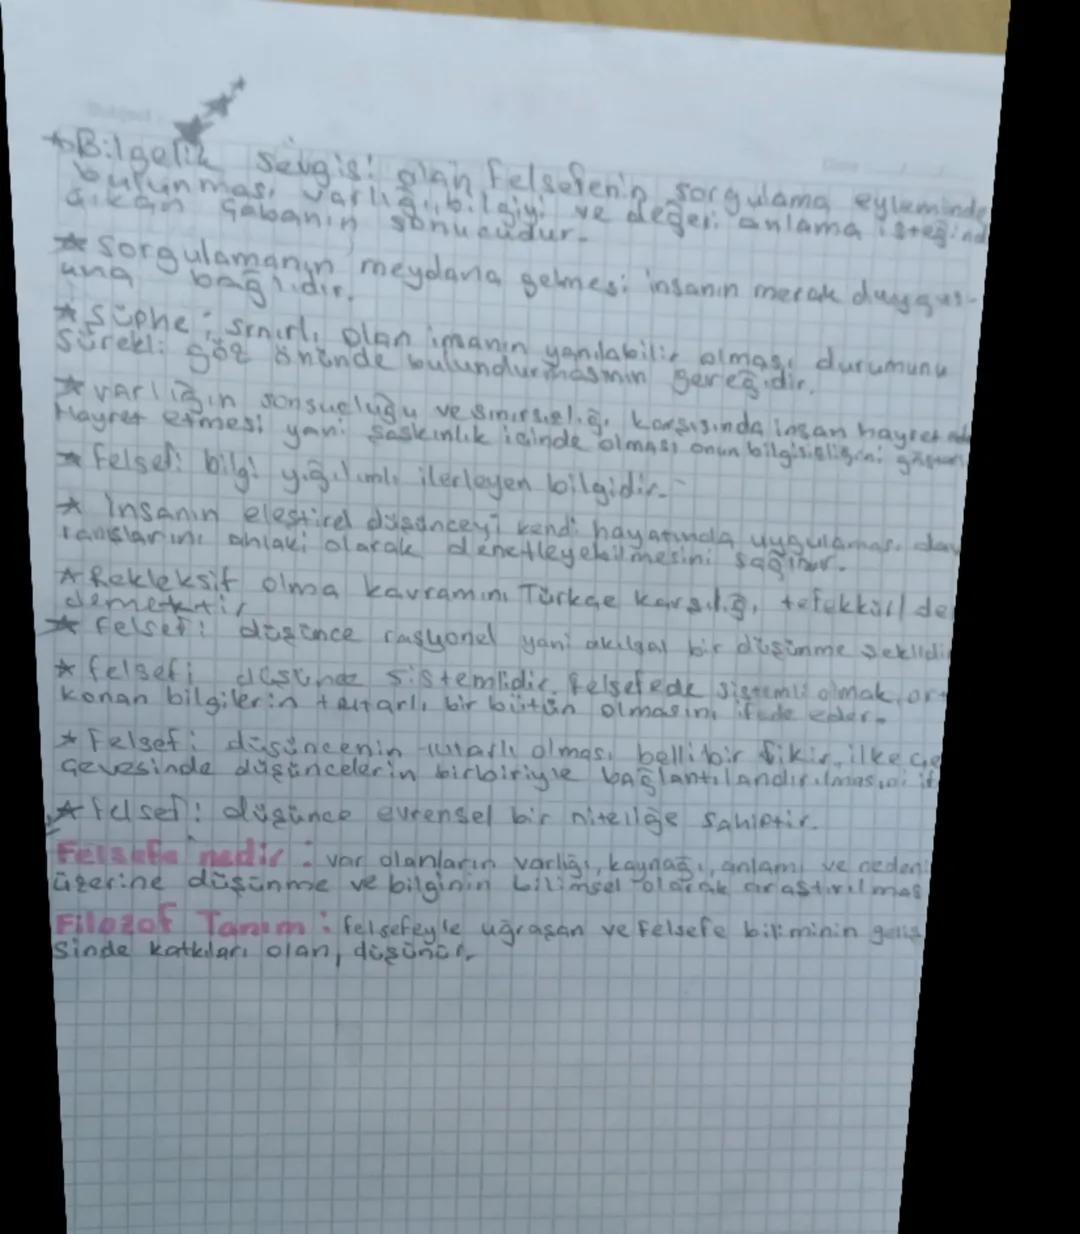 Subject:
Date / /
★ Bilgelik sevgisi olan felsefenin sorgulama eyleminde
bulunması varlığı, bilgiyi ve değeri anlama isteğind
çıkan çabanın sonucudur.
★ Sorgulamanın meydana gelmesi insanın merak duygus-
una bağlıdır.
★ Şüphe; sınırlı olan imanın yanılabilir olması durumunu
sürekli göz önünde bulundurmasının gereğidir.
★ varlığın sonsuzluğu ve sınırsızlığı karşısında insan hayret
Hayret etmesi yani şaşkınlık içinde olması onun bilgisizliğini
★ felsefi bilgi yığılımlı ilerleyen bilgidir.
★ insanın eleştirel düşünceyi kendi hayatında uygulaması dav
ranışlarını ahlaki olarak denetleyebilmesini sağlar.
★ Refleksif olma kavramının Türkçe karşılığı tefekkür de
demektir
★ felsefi düşünce rasyonel yani akılsal bir düşünme şeklidi
★ felsefi düşünce sistemlidir. felsefede sistemli olmak, ort
konan bilgilerin tutarlı bir bütün olmasını ifade eder.
★ Felsefi düşüncenin tutarlı olması belli bir fikir, ilke çe
çevesinde düşüncelerin birbiriyle bağlantılandırılmasını if
★ felsefi düşünce evrensel bir niteliğe sahiptir.
Felsefe nedir : var olanların varlığı, kaynağı, anlamı ve neden
üzerine düşünme ve bilginin bilimsel olarak araştırılmas
Filozof Tanım : felsefeyle uğraşan ve felsefe biliminin geliş
sinde katkıları olan, düşünür.